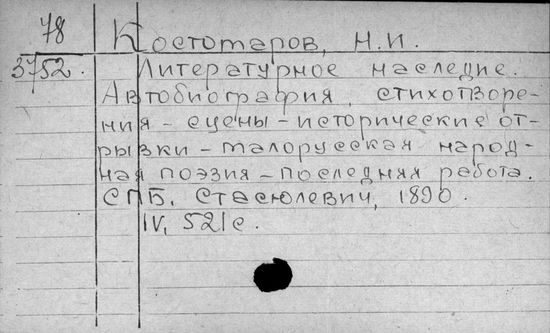 78
Костомаров, Н.И.
3752.
Литературное наследие.
Автобиография, стихотворе-
ния - сцены - исторические от-
рывки - малорусская народ-
ная поэзия - последняя работа.
СПБ. Стасюлевич, 1890.
IV, 521с.